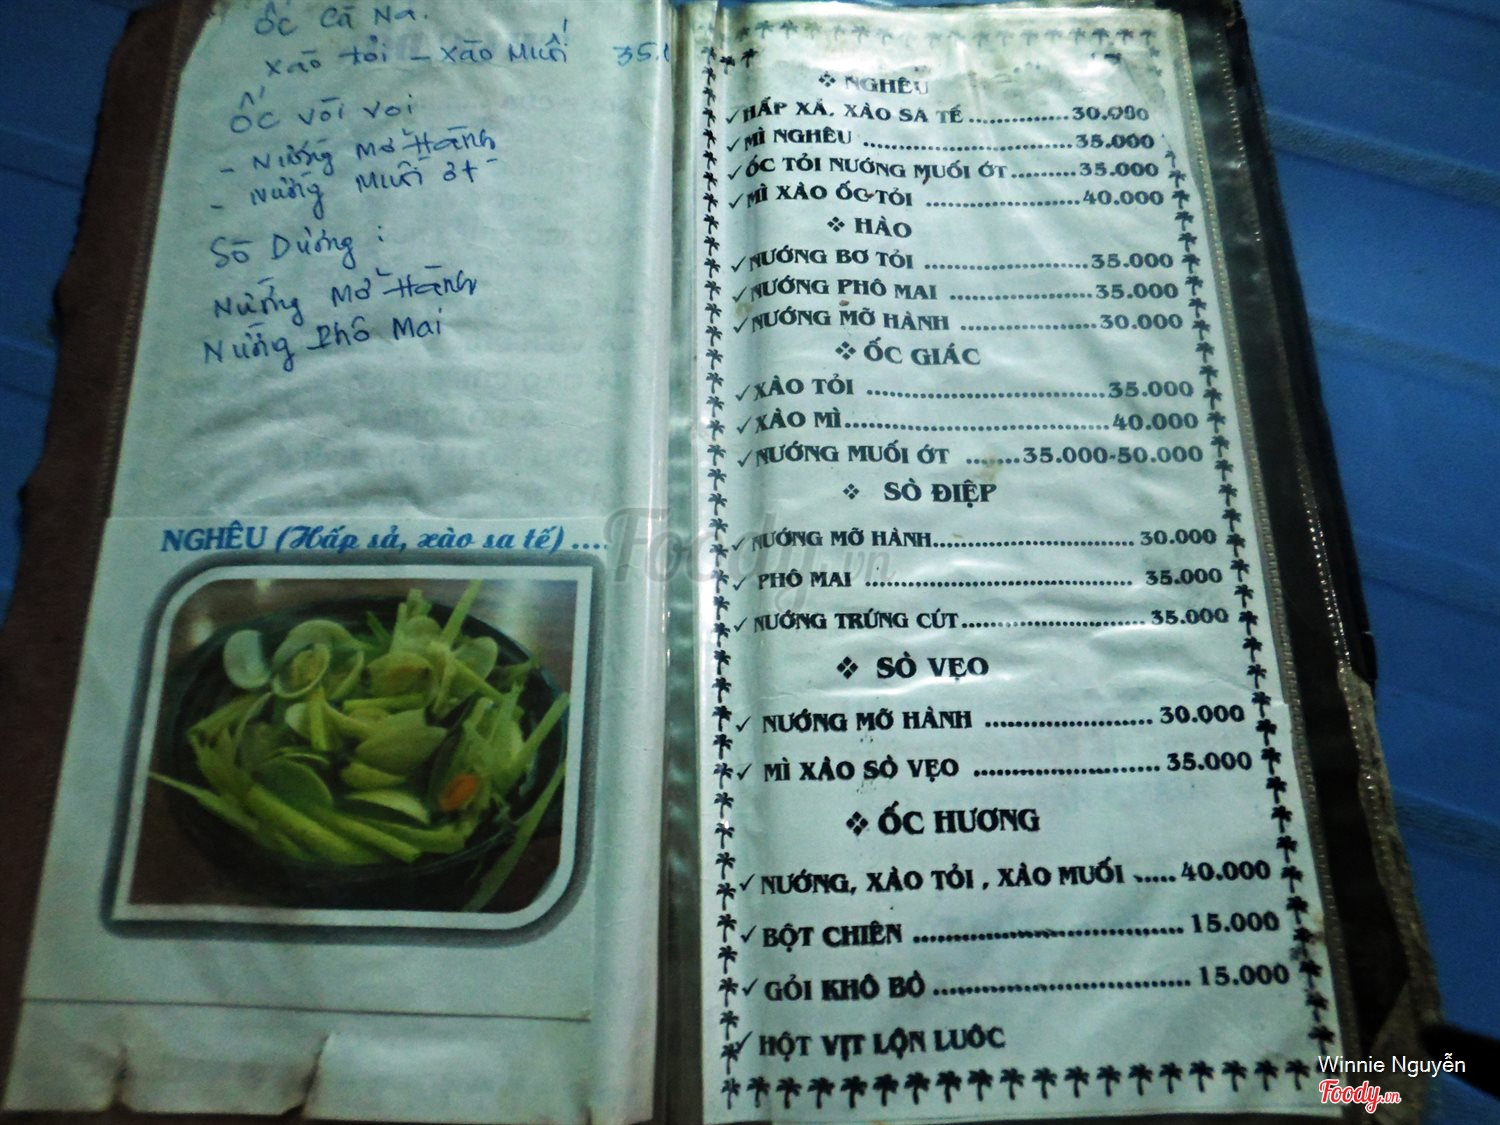 Ốc Cà Na.
Xào tỏi - Xào Muối 35.
Ốc Vòi Voi
- Nướng Mỡ Hành
- Nướng Muối ớt
Sò Dương :
Nướng Mỡ Hành
Nướng Phô Mai
NGHÊU (Hấp sả, xào sa tế) ....
❖ NGHÊU
✓ HẤP XẢ, XÀO SA TẾ ............... 30.000
✓ MÌ NGHÊU ............................... 35.000
✓ ỐC TỎI NƯỚNG MUỐI ỚT ......... 35.000
✓ MÌ XÀO ỐC TỎI ...................... 40.000
❖ HÀO
✓ NƯỚNG BƠ TỎI ........................ 35.000
✓ NƯỚNG PHÔ MAI ..................... 35.000
✓ NƯỚNG MỠ HÀNH .................... 30.000
❖ ỐC GIÁC
✓ XÀO TỎI ................................... 35.000
✓ XÀO MÌ ...................................... 40.000
✓ NƯỚNG MUỐI ỚT ....... 35.000-50.000
❖ SÒ ĐIỆP
✓ NƯỚNG MỠ HÀNH ............................. 30.000
✓ PHÔ MAI ...................................... 35.000
✓ NƯỚNG TRỨNG CÚT .......................... 35.000
❖ SÒ VẸO
✓ NƯỚNG MỠ HÀNH ........................ 30.000
✓ MÌ XÀO SÒ VẸO .......................... 35.000
❖ ỐC HƯƠNG
✓ NƯỚNG, XÀO TỎI , XÀO MUỐI ..... 40.000
✓ BỘT CHIÊN ...................................... 15.000
✓ GỎI KHÔ BÒ .................................... 15.000
✓ HỘT VỊT LỘN LUỘC
Foody.vn
Winnie Nguyễn
Foody.vn